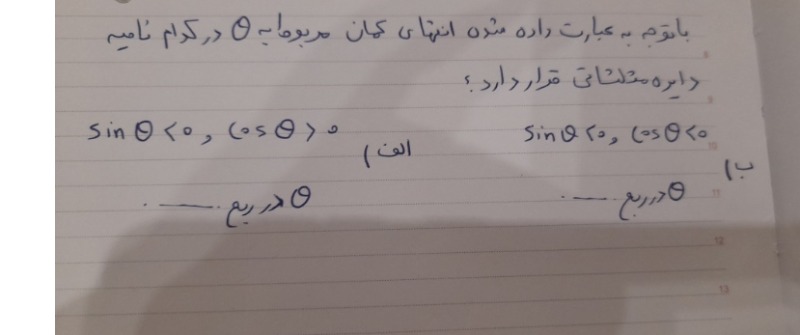 باتوجه به عبارت داده شده انتهای کمان مربوط به θ در کدام ناحیه
دایره مثلثاتی قرار دارد؟
الف) sin θ < ۰ , cos θ > ۰
θ در ربع ........
ب) sin θ < ۰ , cos θ < ۰
θ در ربع ........
9
10
11
12
13